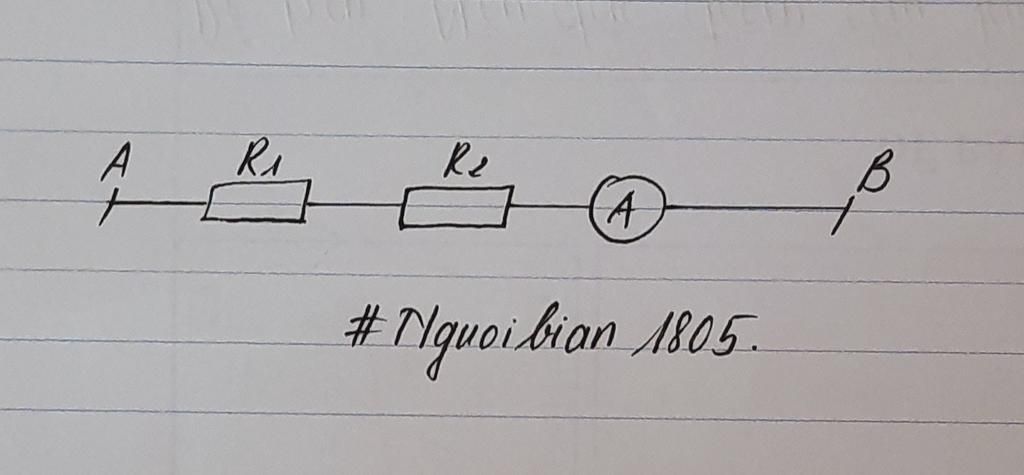 A R1 R2 B
A
# Nguoibian 1805.